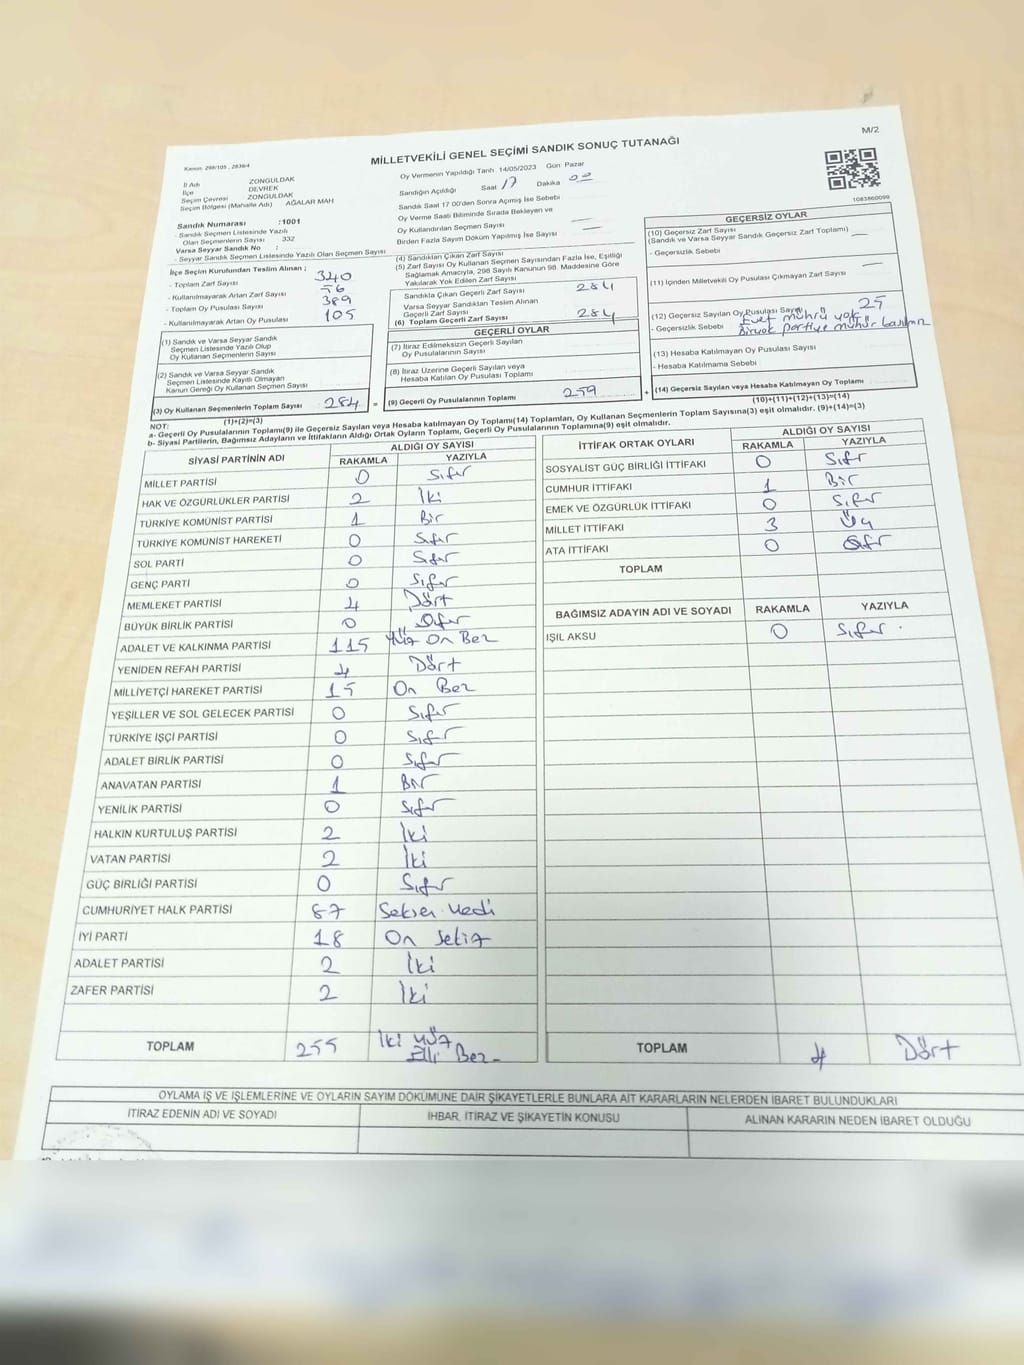 M/2
Kanun: 298/105 , 2839/4
MİLLETVEKİLİ GENEL SEÇİMİ SANDIK SONUÇ TUTANAĞI
İl Adı ZONGULDAK
İlçe DEVREK
Seçim Çevresi ZONGULDAK
Seçim Bölgesi (Mahalle Adı) AĞALAR MAH
Sandık Numarası :1001
- Sandık Seçmen Listesinde Yazılı
Olan Seçmenlerin Sayısı 332
Varsa Seyyar Sandık No :
- Seyyar Sandık Seçmen Listesinde Yazılı Olan Seçmen Sayısı
Oy Vermenin Yapıldığı Tarih 14/05/2023 Gün Pazar
Sandığın Açıldığı Saat 17 Dakika 00
Sandık Saat 17 00'den Sonra Açımış İse Sebebi
Oy Verme Saati Bitiminde Sırada Bekleyen ve
Oy Kullandırılan Seçmen Sayısı —
Birden Fazla Sayım Döküm Yapılmış İse Sayısı —
1083860099
İlçe Seçim Kurulundan Teslim Alınan ;
- Toplam Zarf Sayısı 340
- Kullanılmayarak Artan Zarf Sayısı 56
- Toplam Oy Pusulası Sayısı 389
- Kullanılmayarak Artan Oy Pusulası 105
(1) Sandık ve Varsa Seyyar Sandık
Seçmen Listesinde Yazılı Olup
Oy Kullanan Seçmenlerin Sayısı
(2) Sandık ve Varsa Seyyar Sandık
Seçmen Listesinde Kayıtlı Olmayan
Kanun Gereği Oy Kullanan Seçmen Sayısı
(3) Oy Kullanan Seçmenlerin Toplam Sayısı 284 =
(1)+(2)=(3)
(4) Sandıktan Çıkan Zarf Sayısı
(5) Zarf Sayısı Oy Kullanan Seçmen Sayısından Fazla İse, Eşitliği
Sağlamak Amacıyla, 298 Sayılı Kanunun 98. Maddesine Göre
Yakılarak Yok Edilen Zarf Sayısı
Sandıkta Çıkan Geçerli Zarf Sayısı 284
Varsa Seyyar Sandıktan Teslim Alınan
Geçerli Zarf Sayısı
(6) Toplam Geçerli Zarf Sayısı 284
GEÇERLİ OYLAR
(7) İtiraz Edilmeksizin Geçerli Sayılan
Oy Pusulalarının Sayısı
(8) İtiraz Üzerine Geçerli Sayılan veya
Hesaba Katılan Oy Pusulası Toplamı
(9) Geçerli Oy Pusulalarının Toplamı 259 +
GEÇERSİZ OYLAR
(10) Geçersiz Zarf Sayısı
(Sandık ve Varsa Seyyar Sandık Geçersiz Zarf Toplamı) —
- Geçersizlik Sebebi
(11) İçinden Milletvekili Oy Pusulası Çıkmayan Zarf Sayısı —
(12) Geçersiz Sayılan Oy Pusulası Sayısı 25
- Geçersizlik Sebebi Evet mührü yok
Birçok partiye mühür basılmış
(13) Hesaba Katılmayan Oy Pusulası Sayısı
- Hesaba Katılmama Sebebi
(14) Geçersiz Sayılan veya Hesaba Katılmayan Oy Toplamı
(10)+(11)+(12)+(13)=(14)
NOT:
a- Geçerli Oy Pusulalarının Toplamı(9) ile Geçersiz Sayılan veya Hesaba katılmayan Oy Toplamı(14) Toplamları, Oy Kullanan Seçmenlerin Toplam Sayısına(3) eşit olmalıdır. (9)+(14)=(3)
b- Siyasi Partilerin, Bağımsız Adayların ve İttifakların Aldığı Ortak Oyların Toplamı, Geçerli Oy Pusulalarının Toplamına(9) eşit olmalıdır.
SİYASİ PARTİNİN ADI ALDIĞI OY SAYISI
RAKAMLA YAZIYLA
MİLLET PARTİSİ 0 Sıfır
HAK VE ÖZGÜRLÜKLER PARTİSİ 2 İki
TÜRKİYE KOMÜNİST PARTİSİ 1 Bir
TÜRKİYE KOMÜNİST HAREKETİ 0 Sıfır
SOL PARTİ 0 Sıfır
GENÇ PARTİ 0 Sıfır
MEMLEKET PARTİSİ 4 Dört
BÜYÜK BİRLİK PARTİSİ 0 Sıfır
ADALET VE KALKINMA PARTİSİ 115 Yüz On Beş
YENİDEN REFAH PARTİSİ 4 Dört
MİLLİYETÇİ HAREKET PARTİSİ 15 On Beş
YEŞİLLER VE SOL GELECEK PARTİSİ 0 Sıfır
TÜRKİYE İŞÇİ PARTİSİ 0 Sıfır
ADALET BİRLİK PARTİSİ 0 Sıfır
ANAVATAN PARTİSİ 1 Bir
YENİLİK PARTİSİ 0 Sıfır
HALKIN KURTULUŞ PARTİSİ 2 İki
VATAN PARTİSİ 2 İki
GÜÇ BİRLİĞİ PARTİSİ 0 Sıfır
CUMHURİYET HALK PARTİSİ 87 Seksen Yedi
İYİ PARTİ 18 On Sekiz
ADALET PARTİSİ 2 İki
ZAFER PARTİSİ 2 İki
TOPLAM 255 İki Yüz
Elli Beş
İTTİFAK ORTAK OYLARI ALDIĞI OY SAYISI
RAKAMLA YAZIYLA
SOSYALİST GÜÇ BİRLİĞİ İTTİFAKI 0 Sıfır
CUMHUR İTTİFAKI 1 Bir
EMEK VE ÖZGÜRLÜK İTTİFAKI 0 Sıfır
MİLLET İTTİFAKI 3 Üç
ATA İTTİFAKI 0 Sıfır
TOPLAM
BAĞIMSIZ ADAYIN ADI VE SOYADI RAKAMLA YAZIYLA
IŞIL AKSU 0 Sıfır.
TOPLAM 4 Dört
OYLAMA İŞ VE İŞLEMLERİNE VE OYLARIN SAYIM DÖKÜMÜNE DAİR ŞİKAYETLERLE BUNLARA AİT KARARLARIN NELERDEN İBARET BULUNDUKLARI
İTİRAZ EDENİN ADI VE SOYADI İHBAR, İTİRAZ VE ŞİKAYETİN KONUSU ALINAN KARARIN NEDEN İBARET OLDUĞU